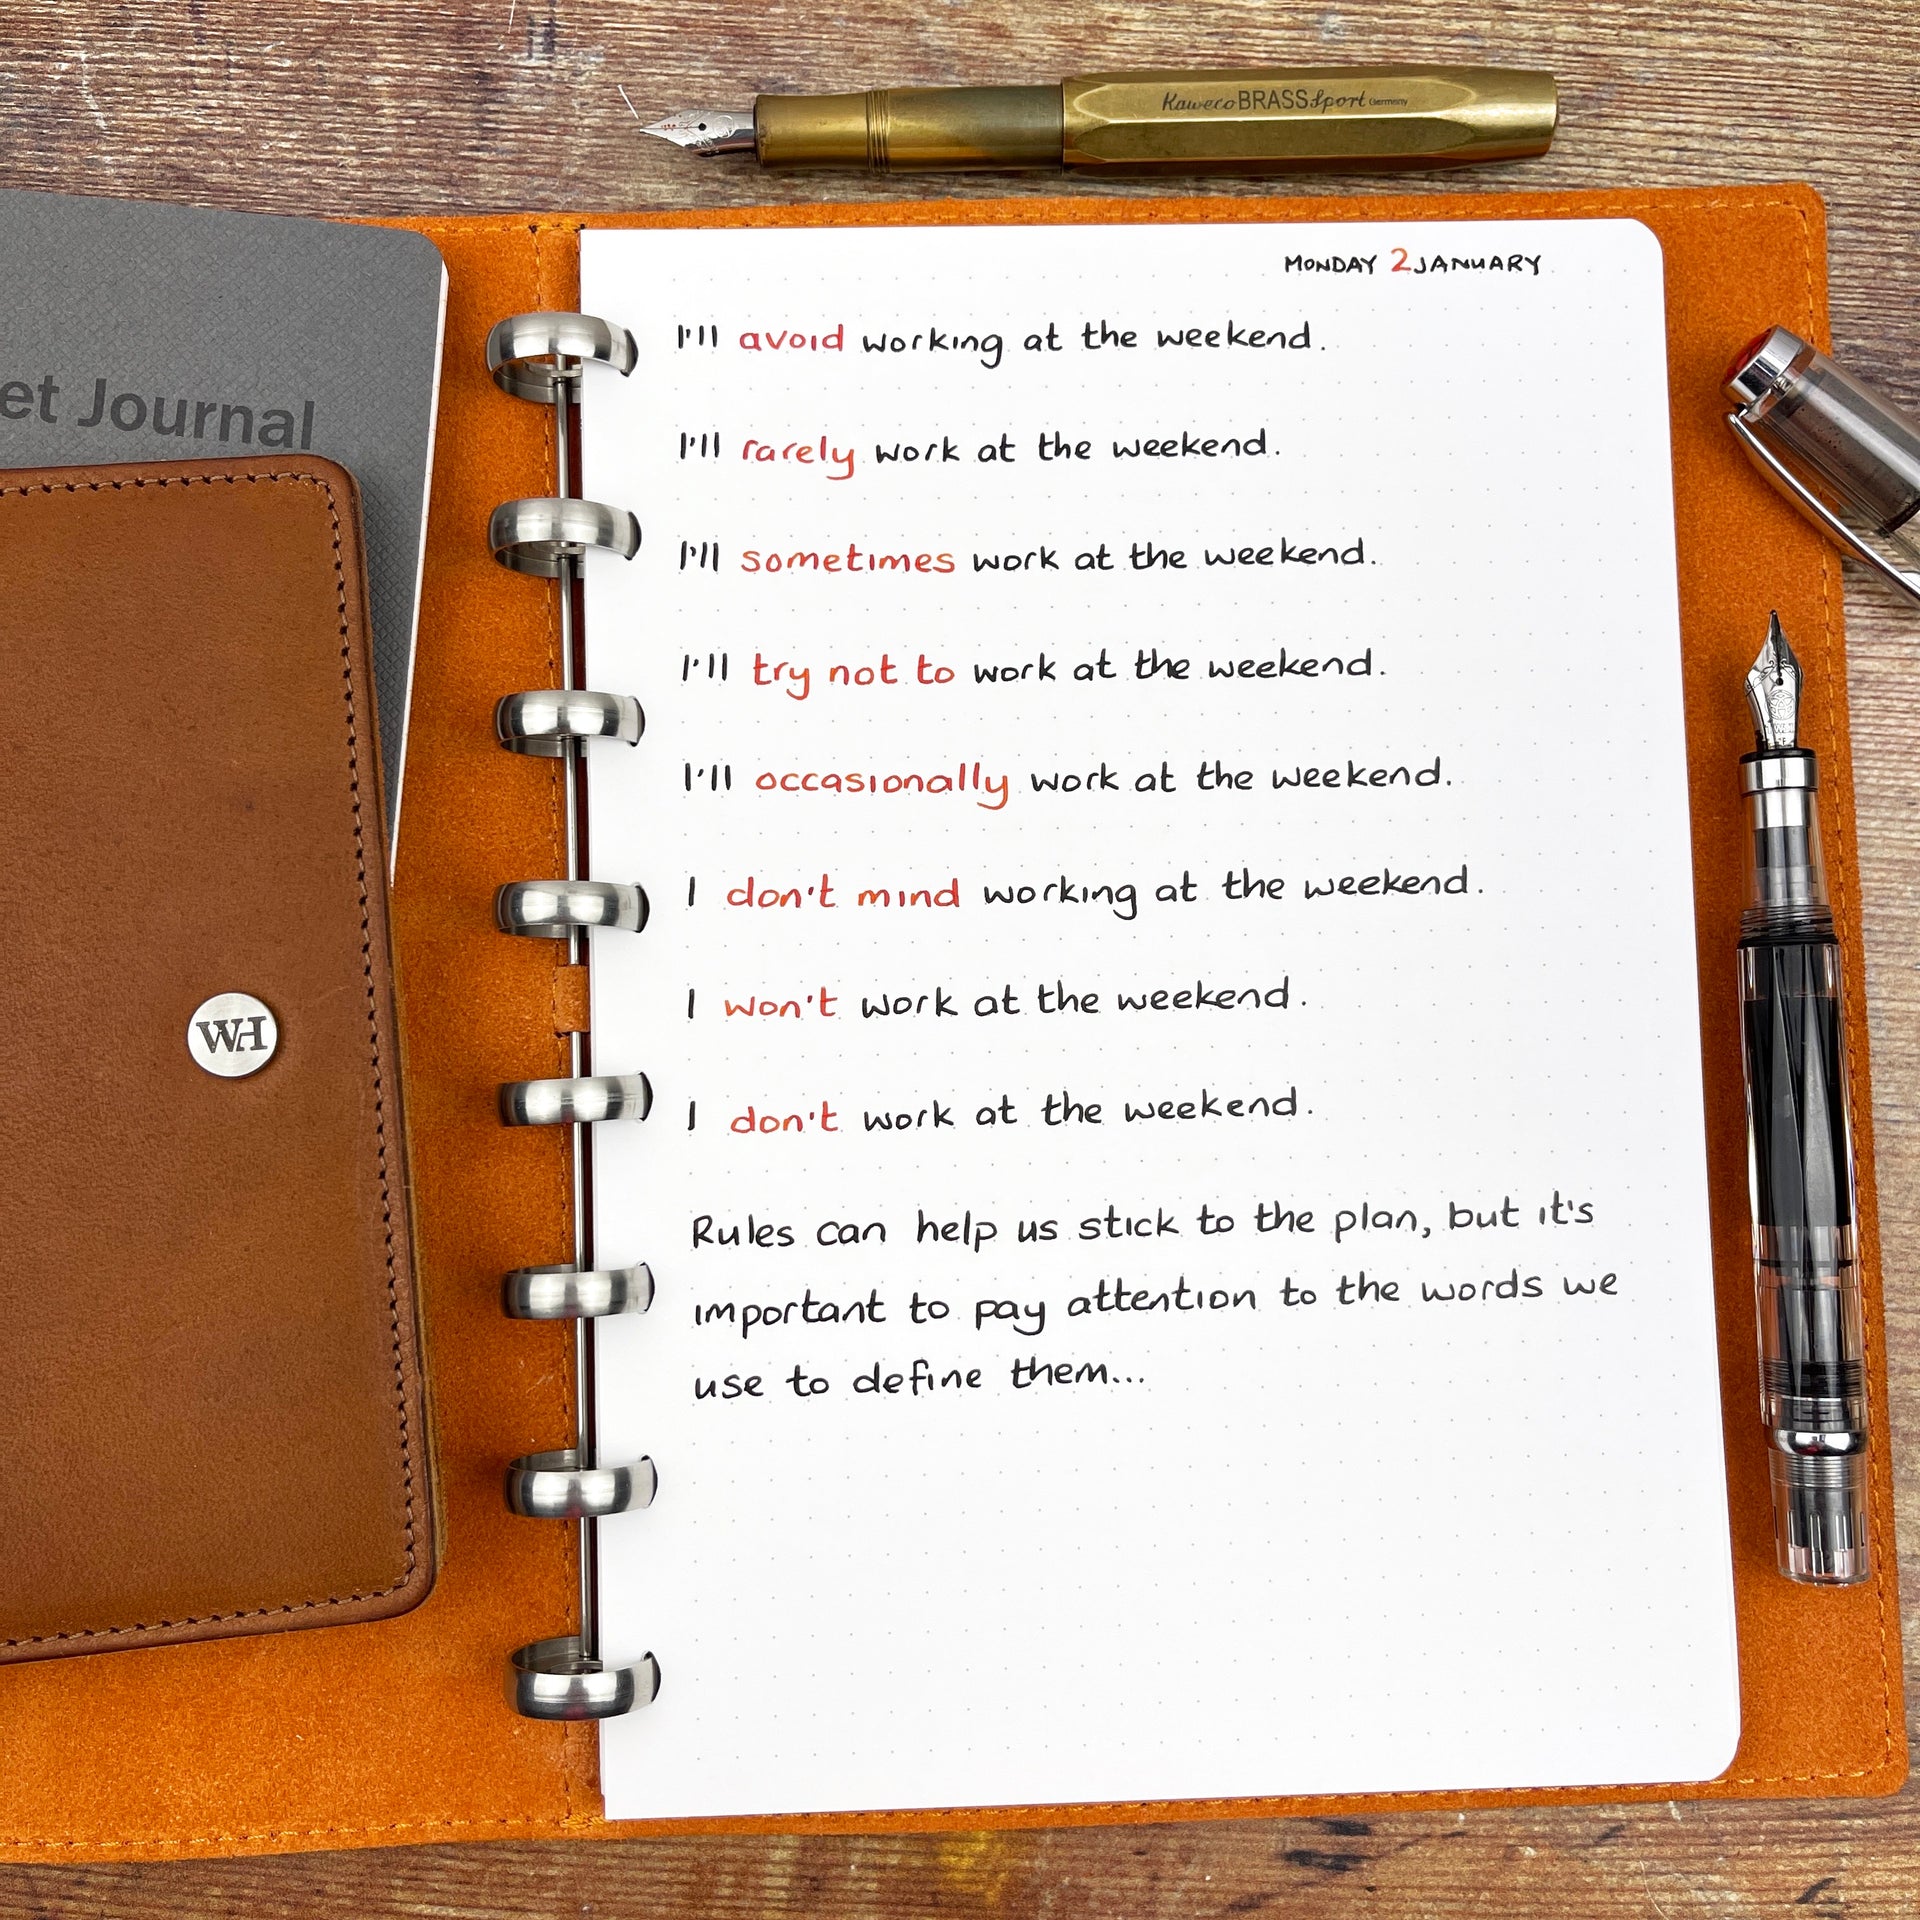 Kaweco BRASS Sport Germany
et Journal
WH
MONDAY 2 JANUARY
I'll avoid working at the weekend.
I'll rarely work at the weekend.
I'll sometimes work at the weekend.
I'll try not to work at the weekend.
I'll occasionally work at the weekend.
I don't mind working at the weekend.
I won't work at the weekend.
I don't work at the weekend.
Rules can help us stick to the plan, but it's
important to pay attention to the words we
use to define them...